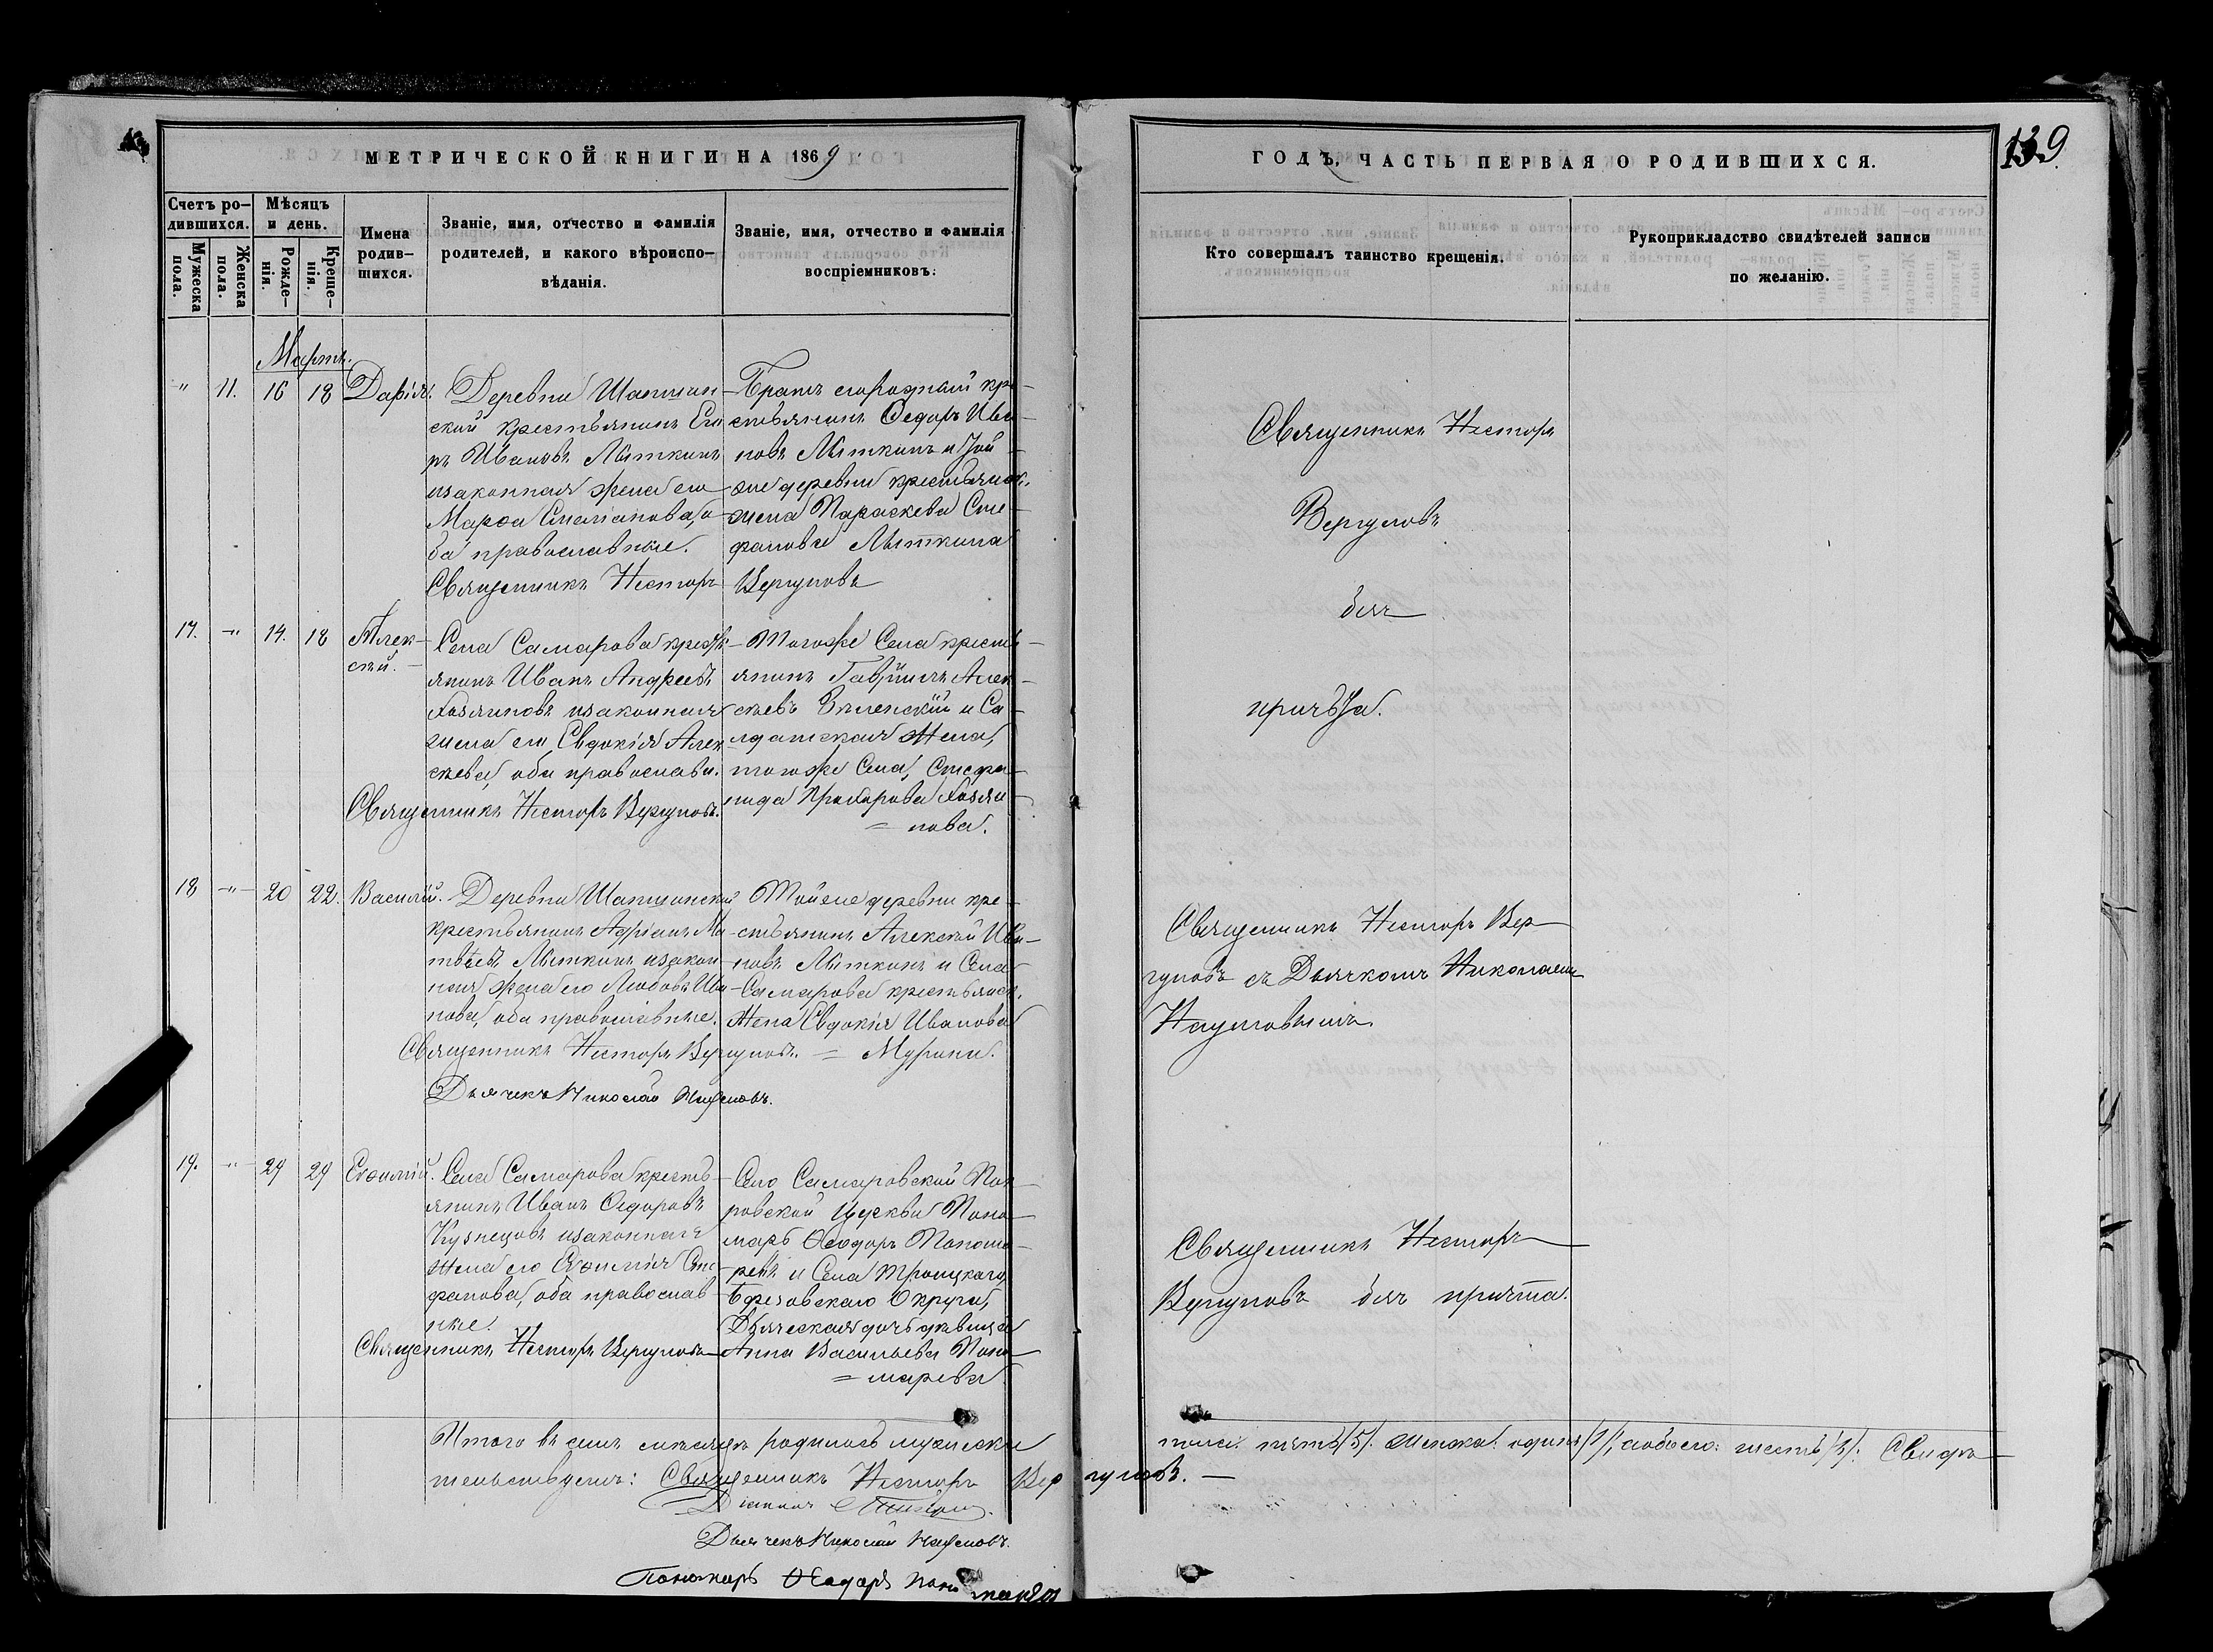 МЕТРИЧЕСКОЙ КНИГИ НА 1869
ГОДЪ, ЧАСТЬ ПЕРВАЯ О РОДИВШИХСЯ.
139
Счетъ ро-
дившихся.
Мужеска
пола.
Женска
пола.
Мѣсяцъ
и день.
Рожде-
нія.
Креще-
нія.
Имена
родив-
шихся.
Званіе, имя, отчество и фамилія
родителей, и какого вѣроиспо-
вѣданія.
Званіе, имя, отчество и фамилія
воспріемниковъ.
Кто совершалъ таинство крещенія.
Рукоприкладство свидѣтелей записи
по желанію.
Мартъ.
" 11. 16 18 Дарія.
Деревни Шапшин-
ской крестьянинъ Его
ръ Ивановъ Мыткинъ
изаконная жена его
Марѳа Степанова, о-
ба православные.
Священникъ Несторъ Вергуновъ
Братъ его родный кре-
стьянинъ Ѳедоръ Ива-
новъ Мыткинъ и той
же деревни крестьянск.
жена Параскева Сте-
фанова Мыткина
Священникъ Несторъ
Вергуновъ
безъ
причта.
17. -"- 14. 18 Алек-
сѣй.
Села Самарова кресть-
янинъ Иванъ Андреевъ
Хозяиновъ изаконная
жена его Евдокія Алек-
сѣева, оба православн.
Священникъ Несторъ Вергуновъ.
Тогоже Села кресть-
янинъ Гавріилъ Алек-
сѣевъ и Са-
лдатская жена,
тогоже Села, Стефа-
нида Прохорова Хозяи-
= нова.
18 -"- 20 22. Василій.
Деревни Шапшинской
крестьянинъ Адріанъ Ма-
твѣевъ Мыткинъ изакон-
ная жена его Любовь Ива-
нова, оба православные.
Священникъ Несторъ Вергуновъ.
Дьячекъ Николай Наумовъ.
Тойже деревни кре-
стьянинъ Алексѣй Ива-
новъ Мыткинъ и Села
Самарова крестьянск.
жена Евдокія Иванова
= Мурина.
Священникъ Несторъ Вер-
гуновъ съ Дьячкомъ Николаемъ
Наумовымъ.
19. -"- 29 29 Евѳимій.
Села Самарова кресть-
янинъ Иванъ Ѳедоровъ
Кузнецовъ изаконная
жена его Евѳимія Сте-
фанова, оба православ-
ные.
Священникъ Несторъ Вергуновъ
Село Самаровской Пок-
ровской Церкви Поно-
марь Ѳеодоръ Понома-
ревъ и Села Троицкаго,
Березовскаго Округа,
Дьяческая дочь дѣвица
Анна Васильева Поно-
= марева
Священникъ Несторъ
Вергуновъ безъ причта.
Итого въ семъ мѣсяцѣ родилось мужеска
пола: пять /5/. Женска: одинъ /1/, обоего: шесть /6/. Свидѣ-
тельствуемъ: Священникъ Несторъ Вергуновъ. —
Діаконъ
Дьячекъ Николай Наумовъ.
Пономарь Ѳеодоръ Пономаревъ